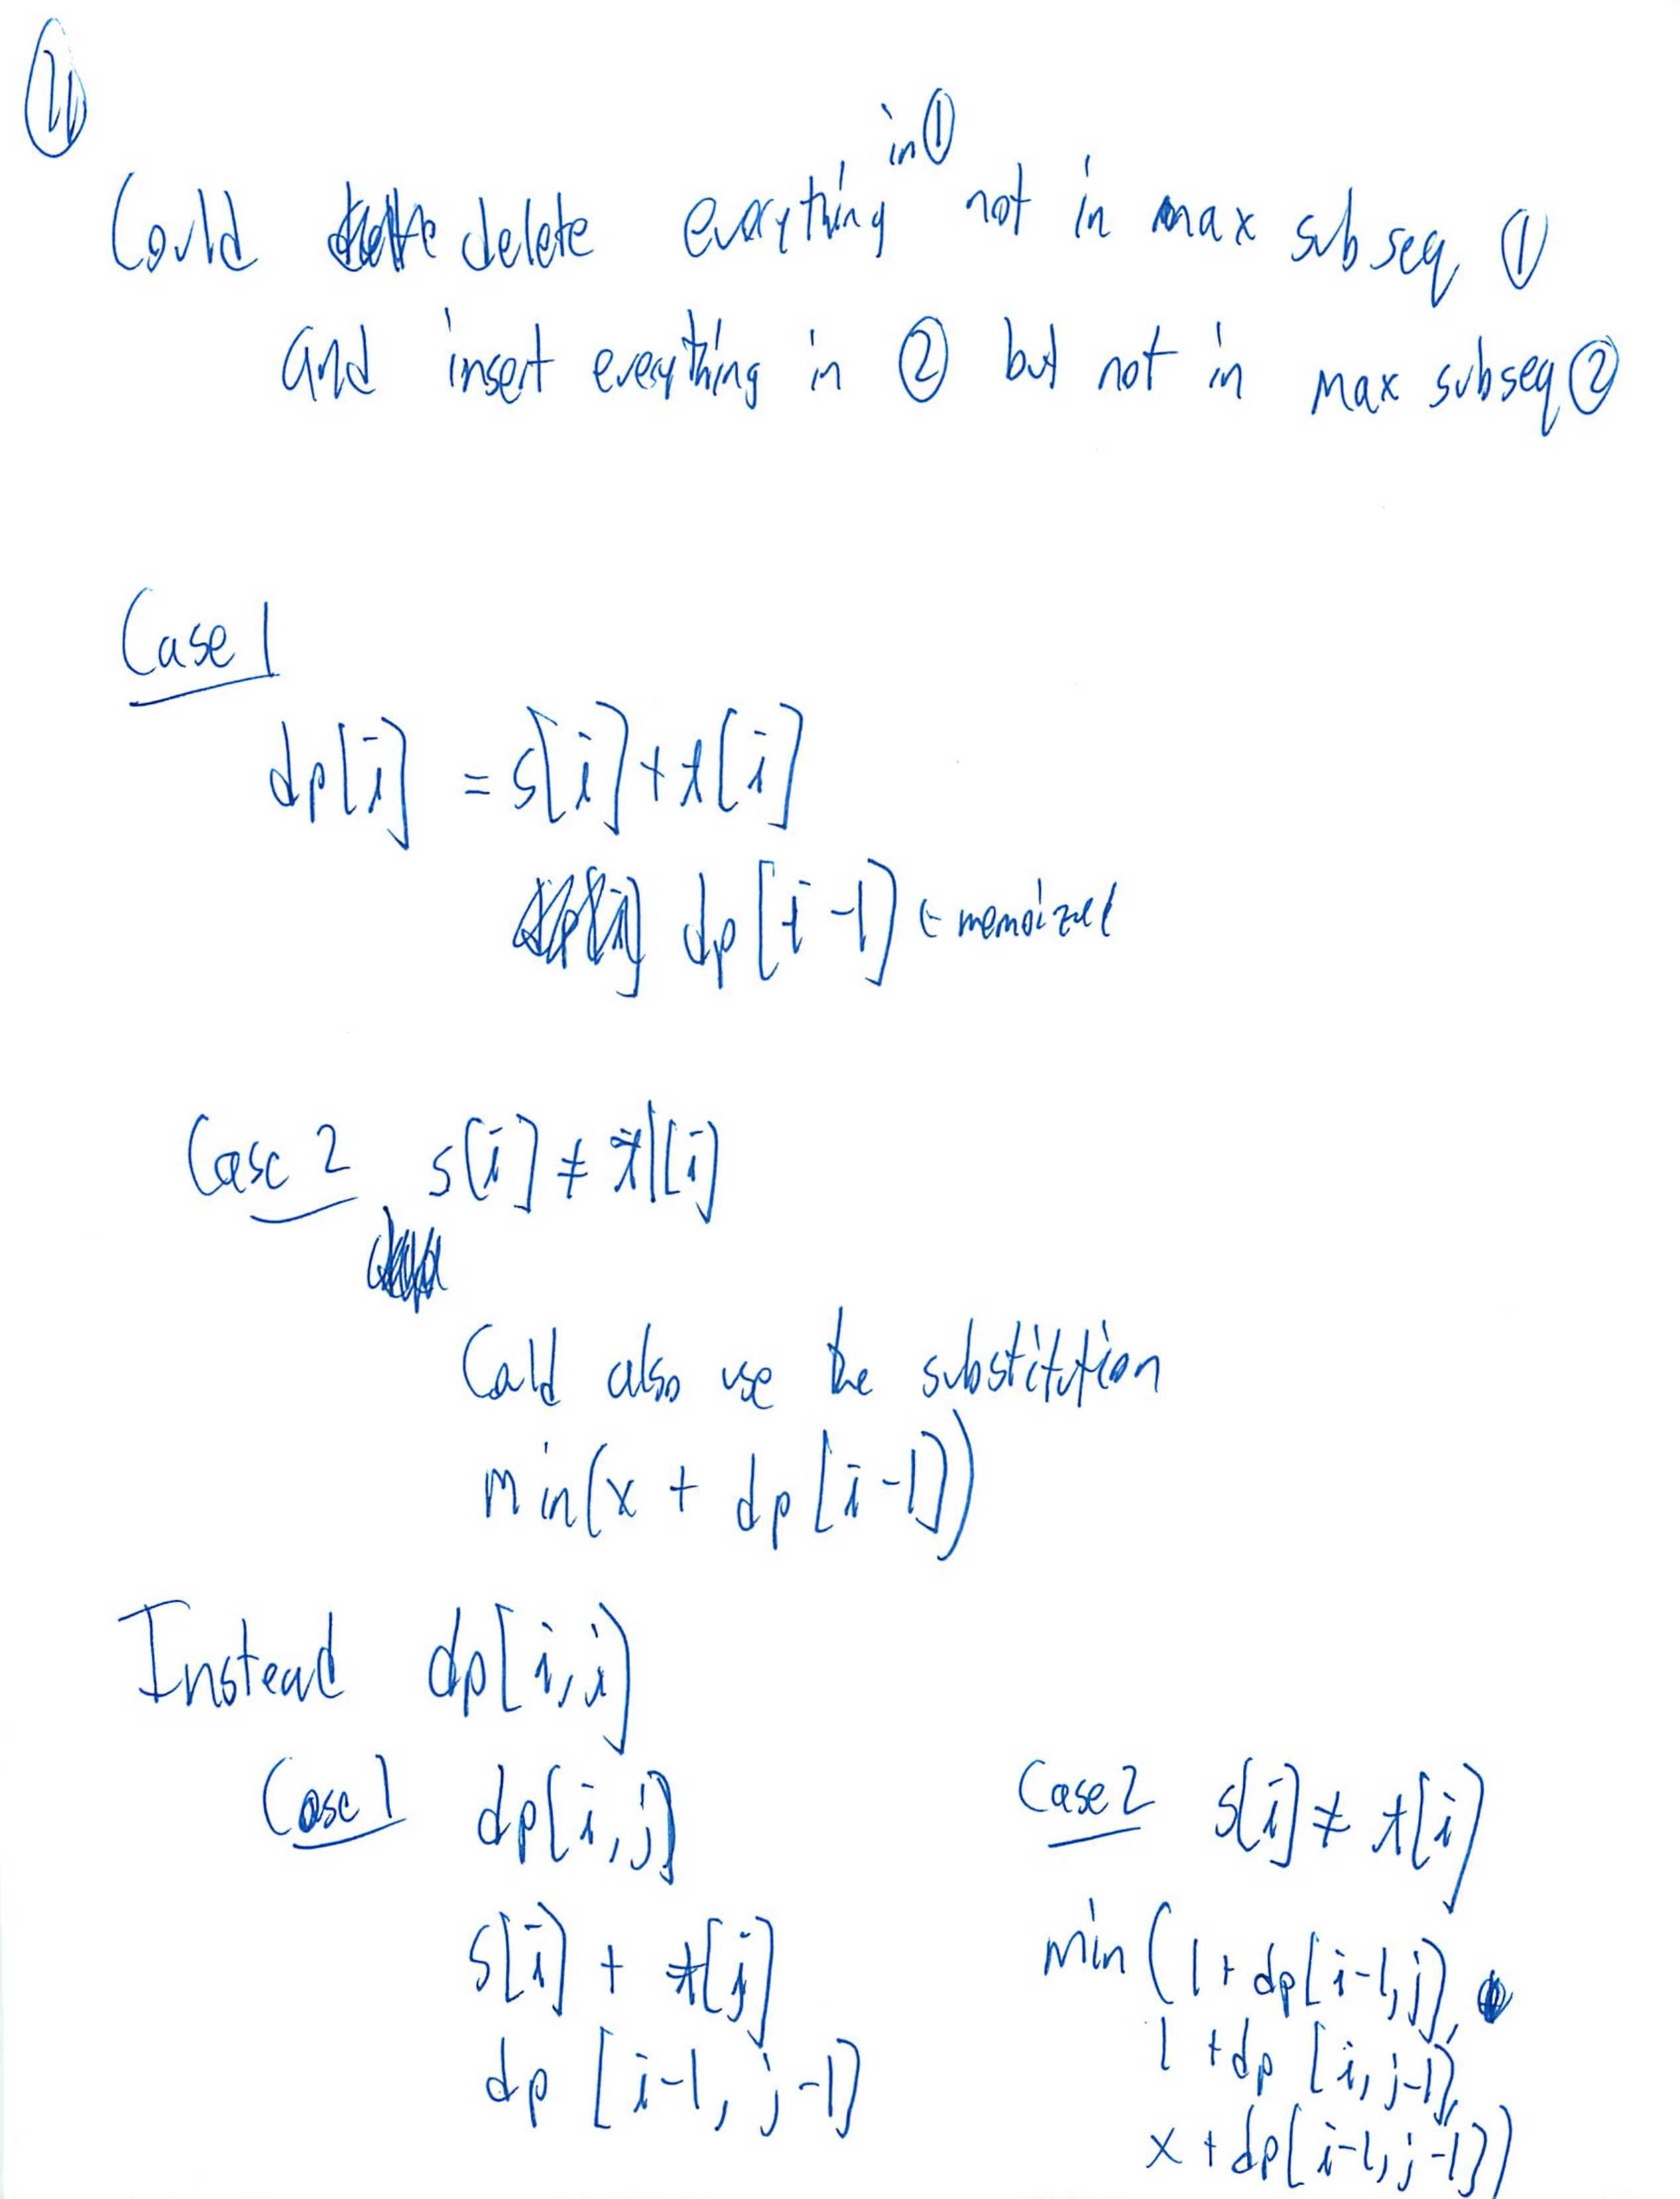 11
in ①
Could delete everything not in max subseq ①
and insert everything in ② but not in max subseq ②
Case 1
dp[i] = s[i] + t[i]
dp[i-1] ← memoized
Case 2 s[i] ≠ t[i]
Could also use the substitution
min(x + dp[i-1])
Instead dp[i,j]
Case 1 dp[i,j]
s[i] + t[j]
dp [i-1, j-1]
Case 2 s[i] ≠ t[i]
min (1 + dp[i-1,j],
1 + dp [i, j-1],
x + dp[i-1, j-1])